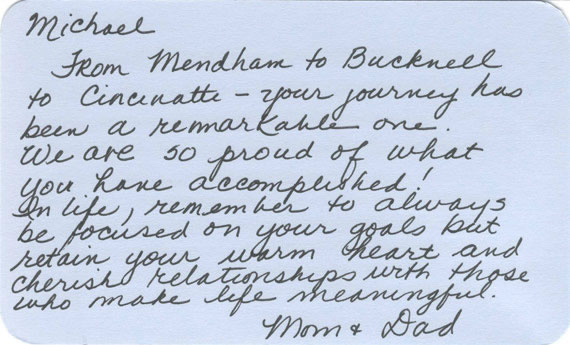 Michael
From Mendham to Bucknell
to Cincinatti - your journey has
been a remarkable one.
We are so proud of what
you have accomplished!
In life, remember to always
be focused on your goals but
retain your warm heart and
cherish relationships with those
who make life meaningful.
Mom & Dad